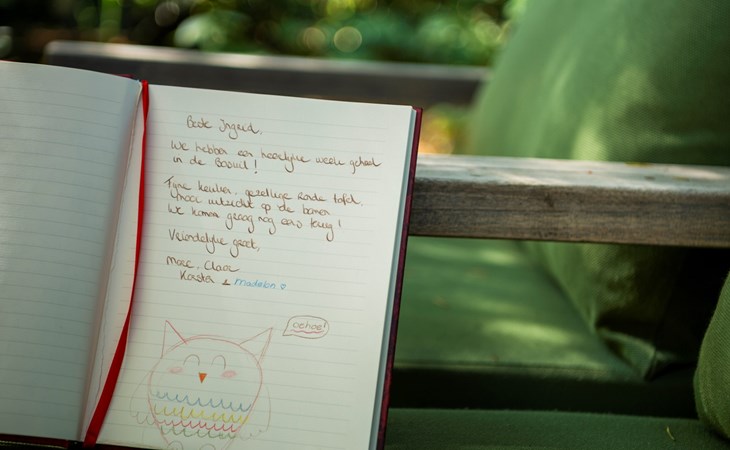 Beste Ingrid,
We hebben een heerlijke week gehad
in de Bosuil!
Fijne keuken, gezellige ronde tafel,
mooi uitzicht op de bomen
We komen graag nog eens terug!
Vriendelijke groet,
Marc, Claar
Karsten & Madelon
oehoe!